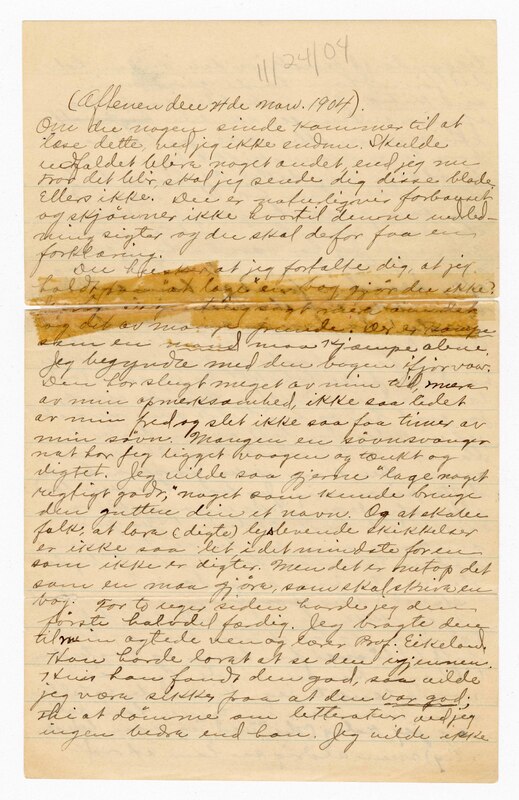 11/24/04
(Aftenen den 4de nov. 1904).
Om du nogen sinde kommer til at
læse dette, ved jeg ikke endnu. Skulde
udfaldet blive noget andet, end jeg nu
tror det blir, skal jeg sende dig disse blade.
Ellers ikke. Du er naturligvis forbauset
og skjønner ikke hvortil denne indled-
ning sigter og du skal defor faa en
forklaring.
Du husker at jeg fortalte dig, at jeg
holdt paa "at lage" en bog, gjør du ikke?
og det av mange grunde. Det er kampe
som en mand maa kjæmpe alene.
Jeg begyndte med den bogen ifjor vaar.
Den har slugt meget av min tid, mere
av min opmerksomhed, ikke saa lidet
av min fred og slet ikke saa faa timer av
min søvn. Mangen en søvnsvanger
nat har jeg ligget vaagen og tænkt og
digtet. Jeg vilde saa gjerne "lage noget
rigtigt godt," noget som kunde bringe
den gutten din et navn. Og at skabe
folk, at lave (digte) lyslevende skikkelser
er ikke saa let i det mindste for en
som ikke er digter. Men det er netop det
som en maa gjøre, som skal skrive en
bog. For to uger siden havde jeg den
første halvdel færdig. Jeg bragte den
til min agtede ven og lærer Prof. Eikeland.
Han havde lovet at se den igjennem.
Hvis han fandt den god, saa vilde
jeg være sikker paa at den var god;
thi at dømme om litteratur ved jeg
ingen bedre end han. Jeg vilde ikke